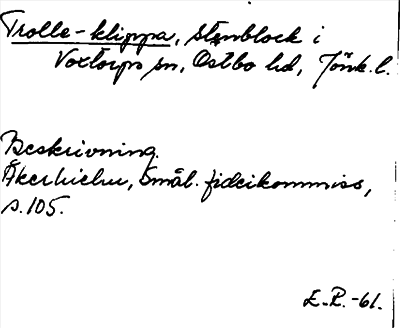 Trolle-klippa, stenblock i
Voxtorps sn, Östbo hd, Jönk. l.
Beskrivning.
Åkerhielm, Smål. fideikommiss,
s. 105.
E.R.-61.